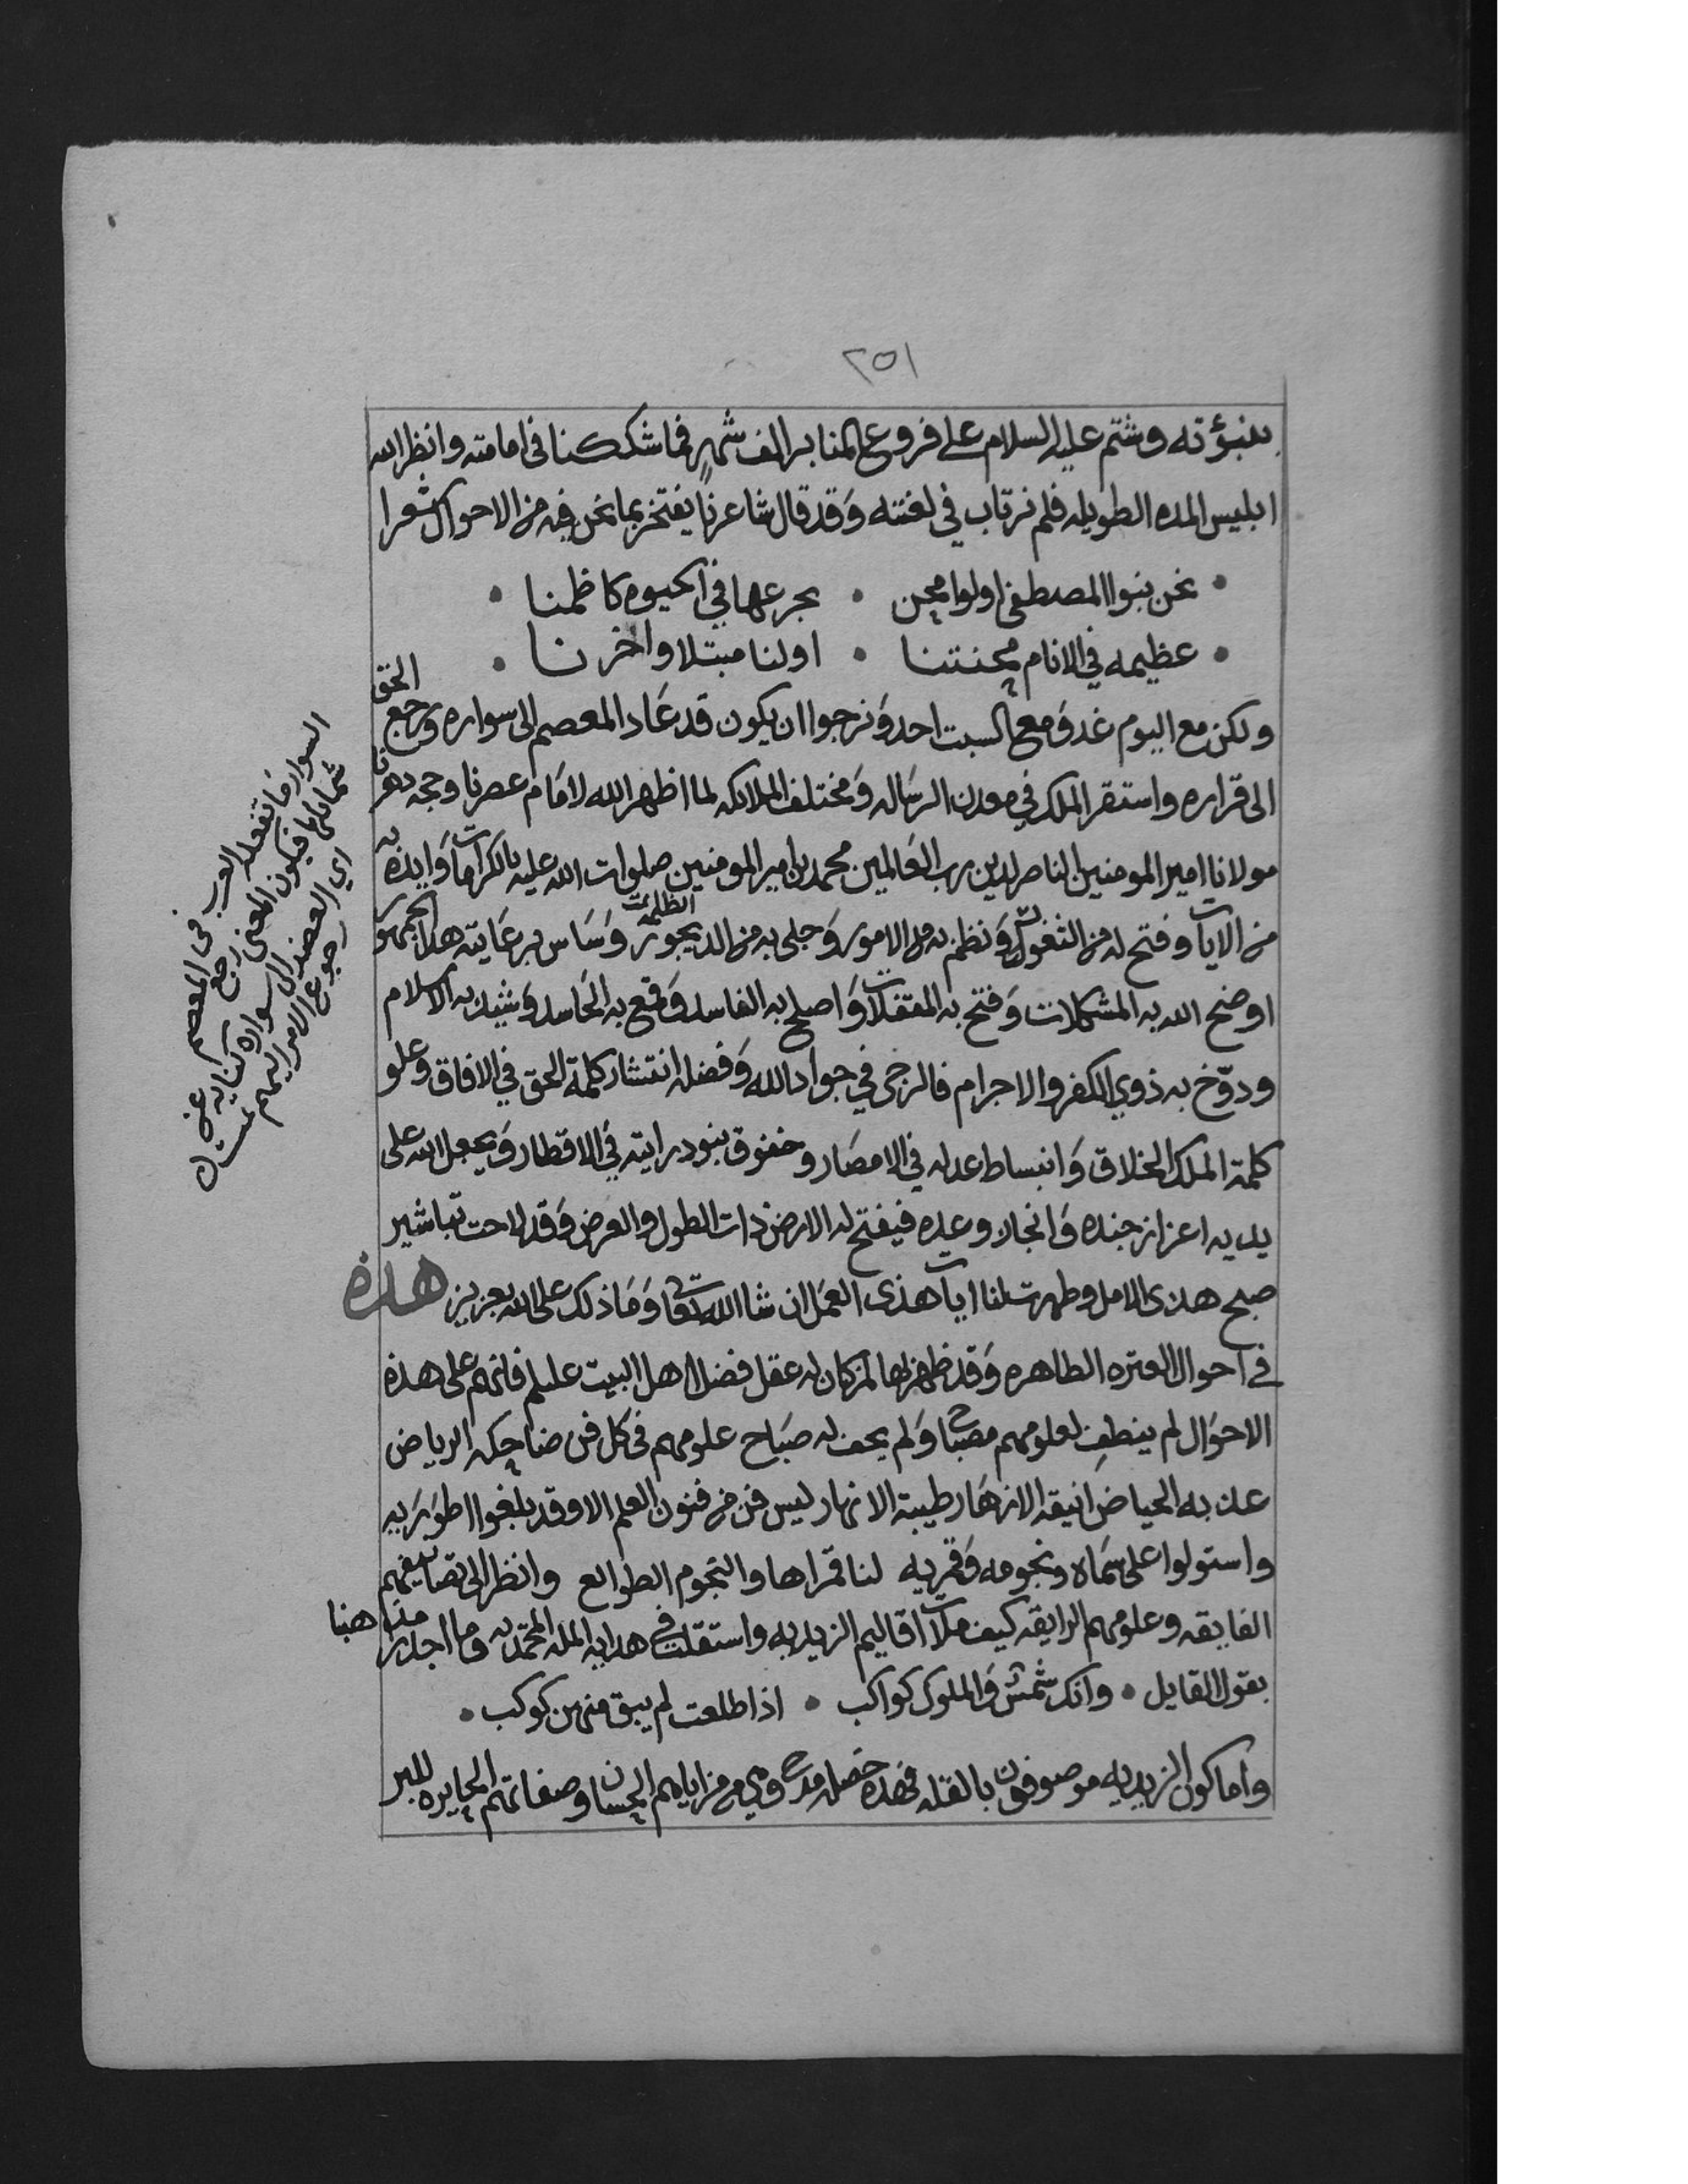 ٢٥١
بنبؤته وشتم عليه السلام على فروع المنابر الف شهرٍ فما شككنا فى امامته وانظر الله
ابليس المده الطويله فلم نرتاب في لعنته وَقد قال شاعرنا يفتخر بما نحن فيه من الاحوال شعرا
• نحن بنوا المصطفى اولوا محن • يجرعها في الحيوه كاظمنا •
• عظيمه في الانام محنتنا • اولنا مبتلا واخرنا •
ولكن مع اليوم غد وَمع السبت احد وَنرجوا ان يكون قد عَاد المعصم الى سواره ورجع الحق
الى قراره واستقر الملك في معدن الرسَاله وَمختلف الملائكه لما اظهر الله لامَام عصرنا وحجه دهرنا
مولانا امير المومنين الناصر لدين رب العَالمين محمد بن امير المومنين صلوات الله عليه بالكرامات وَايده به
من الايات وفتح له من الثغور وَنظم به من الامور وَجلى به من الديجور الظلمه وَسَاس برعَايته هذا الجمهور
اوضح الله به المشكلات وَفتح به المقفلات وَاصلح به الفاسد وَقمع به الحَاسد وَشيد به الاسلام
ودوّخ به ذوي الكفر والاجرام فالرجى في جواد الله وَفضله انتشار كلمة الحق في الافاق وعلو
كلمة الملك الخلاق وَانبساط عدله في الامصَار وخفوق بنود رايته في الاقطار وَيجعل الله على
يديه اعزاز جنده وَانجاز وعده فيفتح له الارض ذات الطول والعرض وَقد لاحت تباشير
صبح هذى الامل وظهرت لنا ايات هذى العمَل ان شا الله تعَا وَمَا ذلك على الله بعزيز هذه
في احوال العتره الطاهره وَقد ظهر بها لمن كان له عقل فضل اهل البيت عليلم فانهم على هذه
الاحوَال لم ينطفِ لعلومهم مصبَاح وَلم يخف له صبَاح علومهم فى كل فن ضاحكه الرياض
عذبه الحياض انيقه الازهَار طيبة الانهار ليس فن من فنون العلم الا وقد بلغوا اطوَرَيه
واستولوا على سمَاه ونجومه وَقمريه لنا قمراها والنجوم الطوالع وانظر الى تصانيفهم
الفايقه وعلومهم الرايقه كيف ملات اقاليم الزيديه واستقلت في هدايه المله المحمديه وما اجدر منا هنا
بقول القايل • وانك شمسٌ وَالملوك كواكب • اذا طلعت لم يبق منهن كوكب •
واما كون الزيديه موصوفون بالقله فهذه خصله مدح وهي من مزاياهم الحسان وصفاتهم الحايزه للبر
السوار ما تفعله العرب فى المعصم
شمائلها فيكون المعنى رجع
اي العضد الى سواره كنايه عن
رجوع الامر اليهم تمت